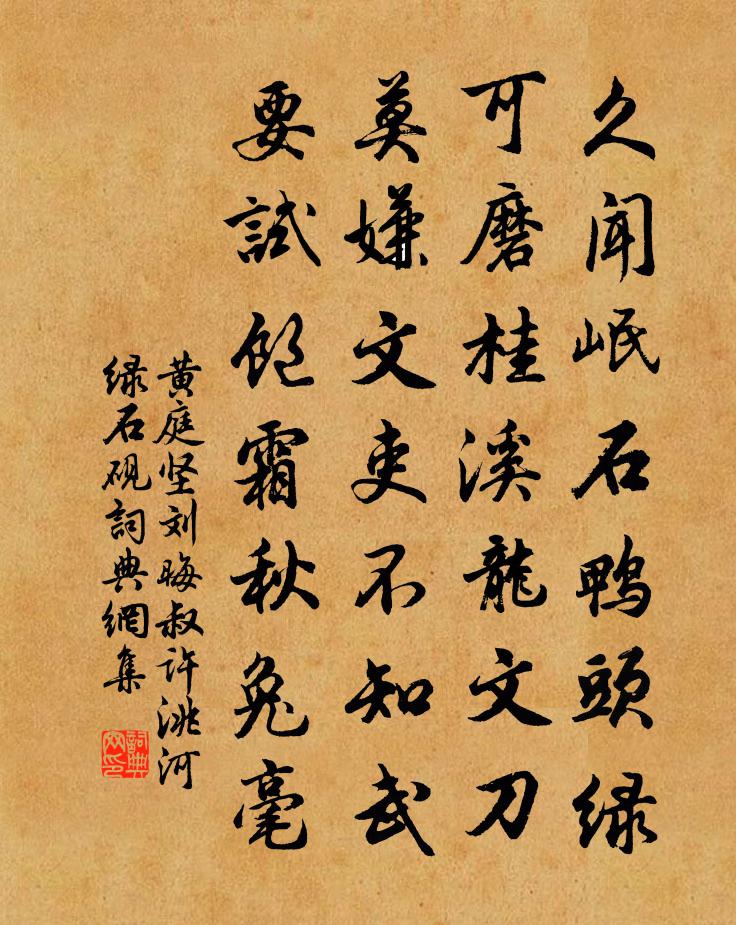 久聞岷石鴨頭緑
可磨桂溪龍文刀
莫嫌文吏不知武
要試飽霜秋兔毫
黄庭坚刘晦叔许洮河
绿石砚詞典網集
詞典網印